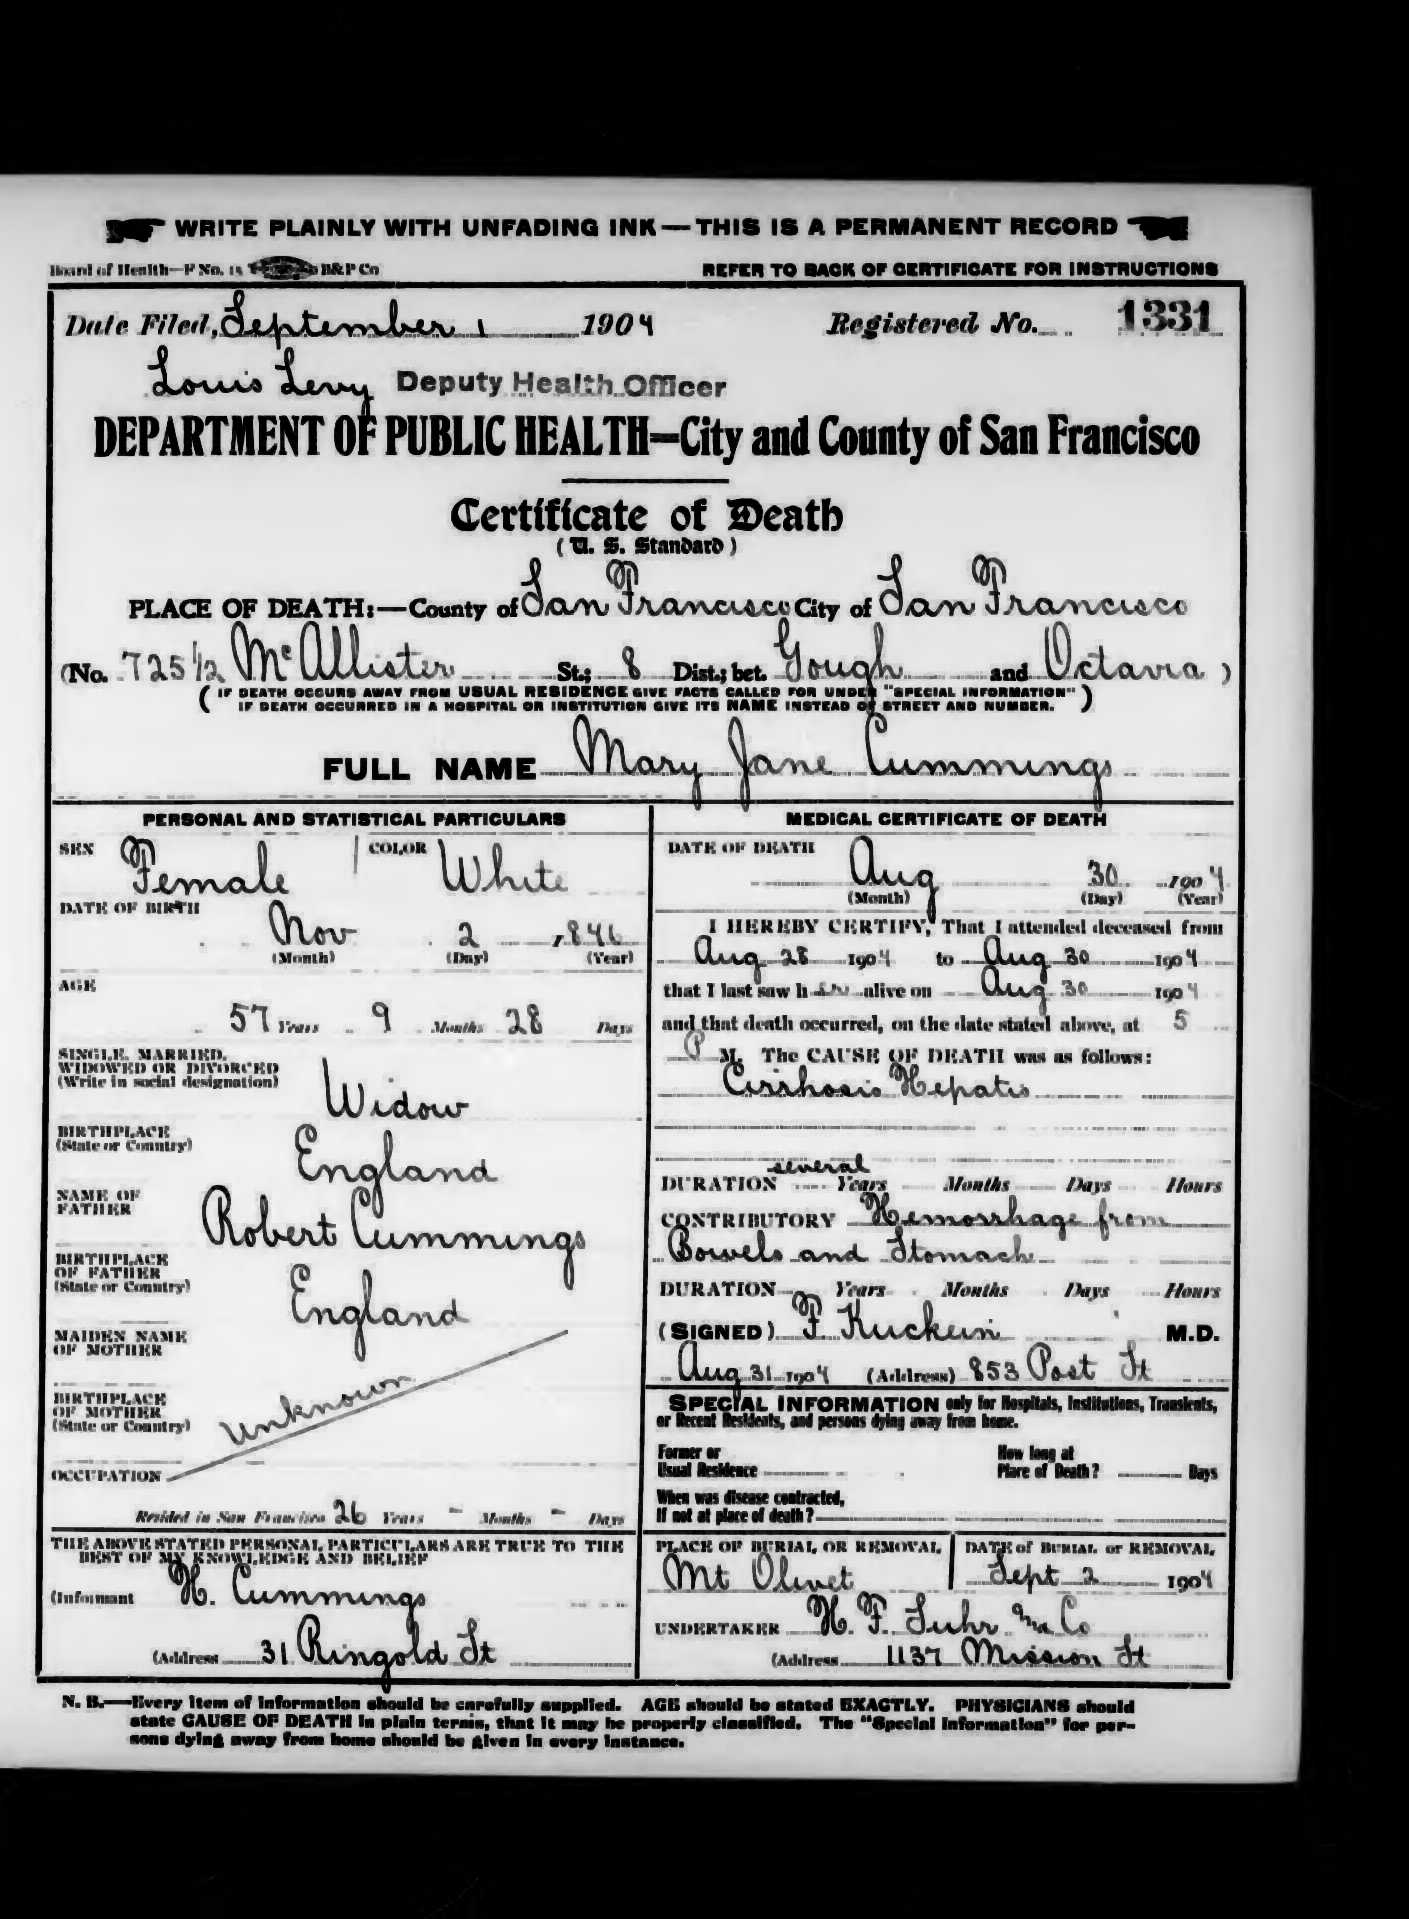 WRITE PLAINLY WITH UNFADING INK — THIS IS A PERMANENT RECORD
Board of Health—F No. 15 B&P Co REFER TO BACK OF CERTIFICATE FOR INSTRUCTIONS
Date Filed, September 1 1904 Registered No. 1331
Louis Levy Deputy Health Officer
DEPARTMENT OF PUBLIC HEALTH=City and County of San Francisco
Certificate of Death
(U. S. Standard)
PLACE OF DEATH:—County of San Francisco City of San Francisco
(No. 725 1/2 McAllister St.; 8 Dist.; bet. Gough and Octavia )
( IF DEATH OCCURS AWAY FROM USUAL RESIDENCE GIVE FACTS CALLED FOR UNDER "SPECIAL INFORMATION" )
IF DEATH OCCURRED IN A HOSPITAL OR INSTITUTION GIVE ITS NAME INSTEAD OF STREET AND NUMBER.
FULL NAME Mary Jane Cummings
PERSONAL AND STATISTICAL PARTICULARS
SEX Female COLOR White
DATE OF BIRTH
Nov 2 , 1846
(Month) (Day) (Year)
AGE
57 Years 9 Months 28 Days
SINGLE, MARRIED,
WIDOWED OR DIVORCED
(Write in social designation)
Widow
BIRTHPLACE
(State or Country)
England
NAME OF
FATHER
Robert Cummings
BIRTHPLACE
OF FATHER
(State or Country)
England
MAIDEN NAME
OF MOTHER
BIRTHPLACE
OF MOTHER
(State or Country)
unknown
OCCUPATION
Resided in San Francisco 26 Years - Months - Days
THE ABOVE STATED PERSONAL PARTICULARS ARE TRUE TO THE
BEST OF MY KNOWLEDGE AND BELIEF
(Informant H. Cummings
(Address 31 Ringold St
MEDICAL CERTIFICATE OF DEATH
DATE OF DEATH
Aug 30 1904
(Month) (Day) (Year)
I HEREBY CERTIFY, That I attended deceased from
Aug 28 1904 to Aug 30 1904
that I last saw her alive on Aug 30 1904
and that death occurred, on the date stated above, at 5
P M. The CAUSE OF DEATH was as follows:
Cirrhosis Hepatis
several
DURATION Years Months Days Hours
CONTRIBUTORY Hemorrhage from
Bowels and Stomach
DURATION Years Months Days Hours
(SIGNED) F. Kuckein M.D.
Aug 31 1904 (Address) 853 Post St
SPECIAL INFORMATION only for Hospitals, Institutions, Transients,
or Recent Residents, and persons dying away from home.
Former or
Usual Residence
How long at
Place of Death? Days
When was disease contracted,
If not at place of death?
PLACE OF BURIAL OR REMOVAL
Mt Olivet
DATE of BURIAL or REMOVAL
Sept 2 1904
UNDERTAKER H. F. Suhr and Co
(Address 1137 Mission St
N. B.—Every item of information should be carefully supplied. AGE should be stated EXACTLY. PHYSICIANS should
state CAUSE OF DEATH in plain terms, that it may be properly classified. The "Special Information" for per-
sons dying away from home should be given in every instance.